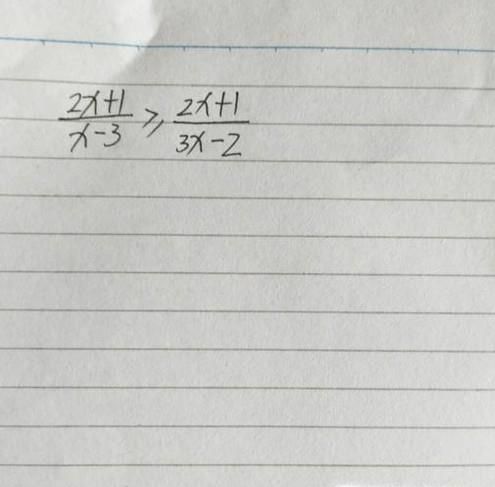 \frac{2x+1}{x-3} ⩾ \frac{2x+1}{3x-2}